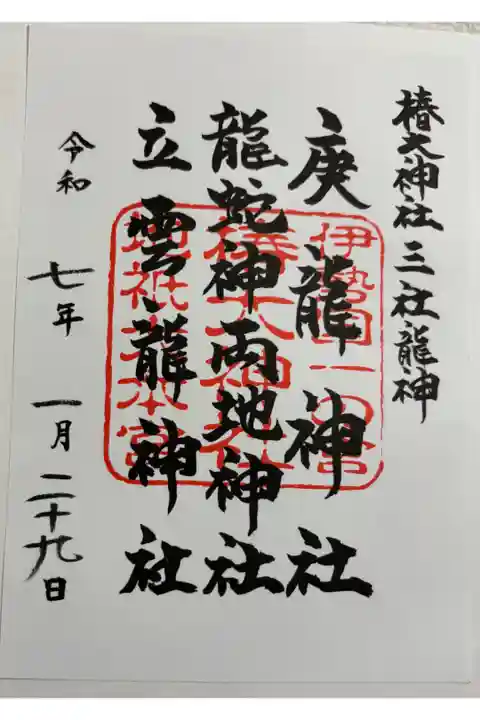 椿大神社 三社龍神
庚龍神社
龍蛇神両地神社
立雲龍神社
令和 七年 一月二十九日
伊勢国一の宮
椿大神社
地祇大本宮